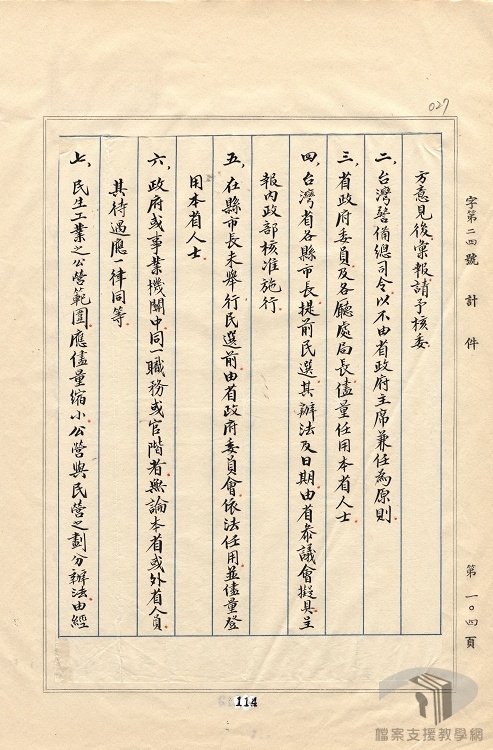 027
字第二四號 計 件
第一〇四頁
方意見後彙報請予核委
二、台灣警備總司令以不由省政府主席兼任為原則
三、省政府委員及各廳處局長儘量任用本省人士
四、台灣省各縣市長提前民選其辦法及日期由省參議會擬具呈
報內政部核准施行
五、在縣市長未舉行民選前由省政府委員會依法任用並儘量登
用本省人士
六、政府或事業機關中同一職務或官階者無論本省或外省人員
其待遇應一律同等
七、民生工業之公營範圍應儘量縮小公營與民營之劃分辦法由經
114
檔案支援教學網